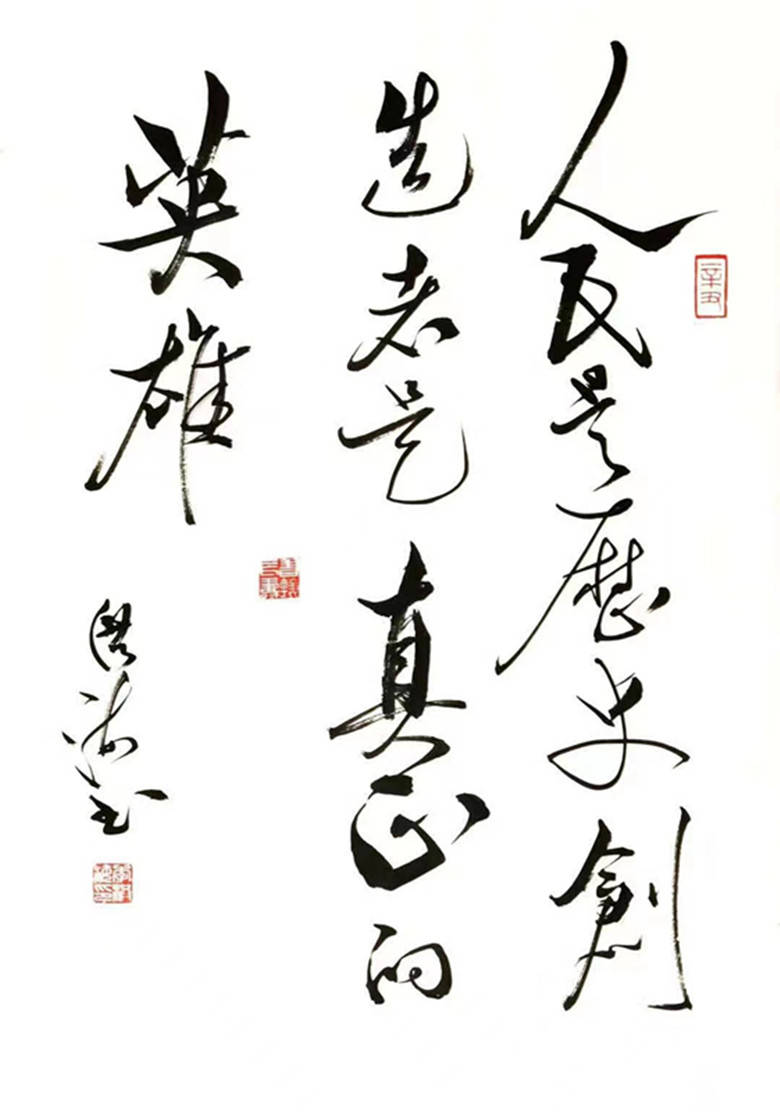 人民是歷史創
造者是真正的
英雄
辛丑